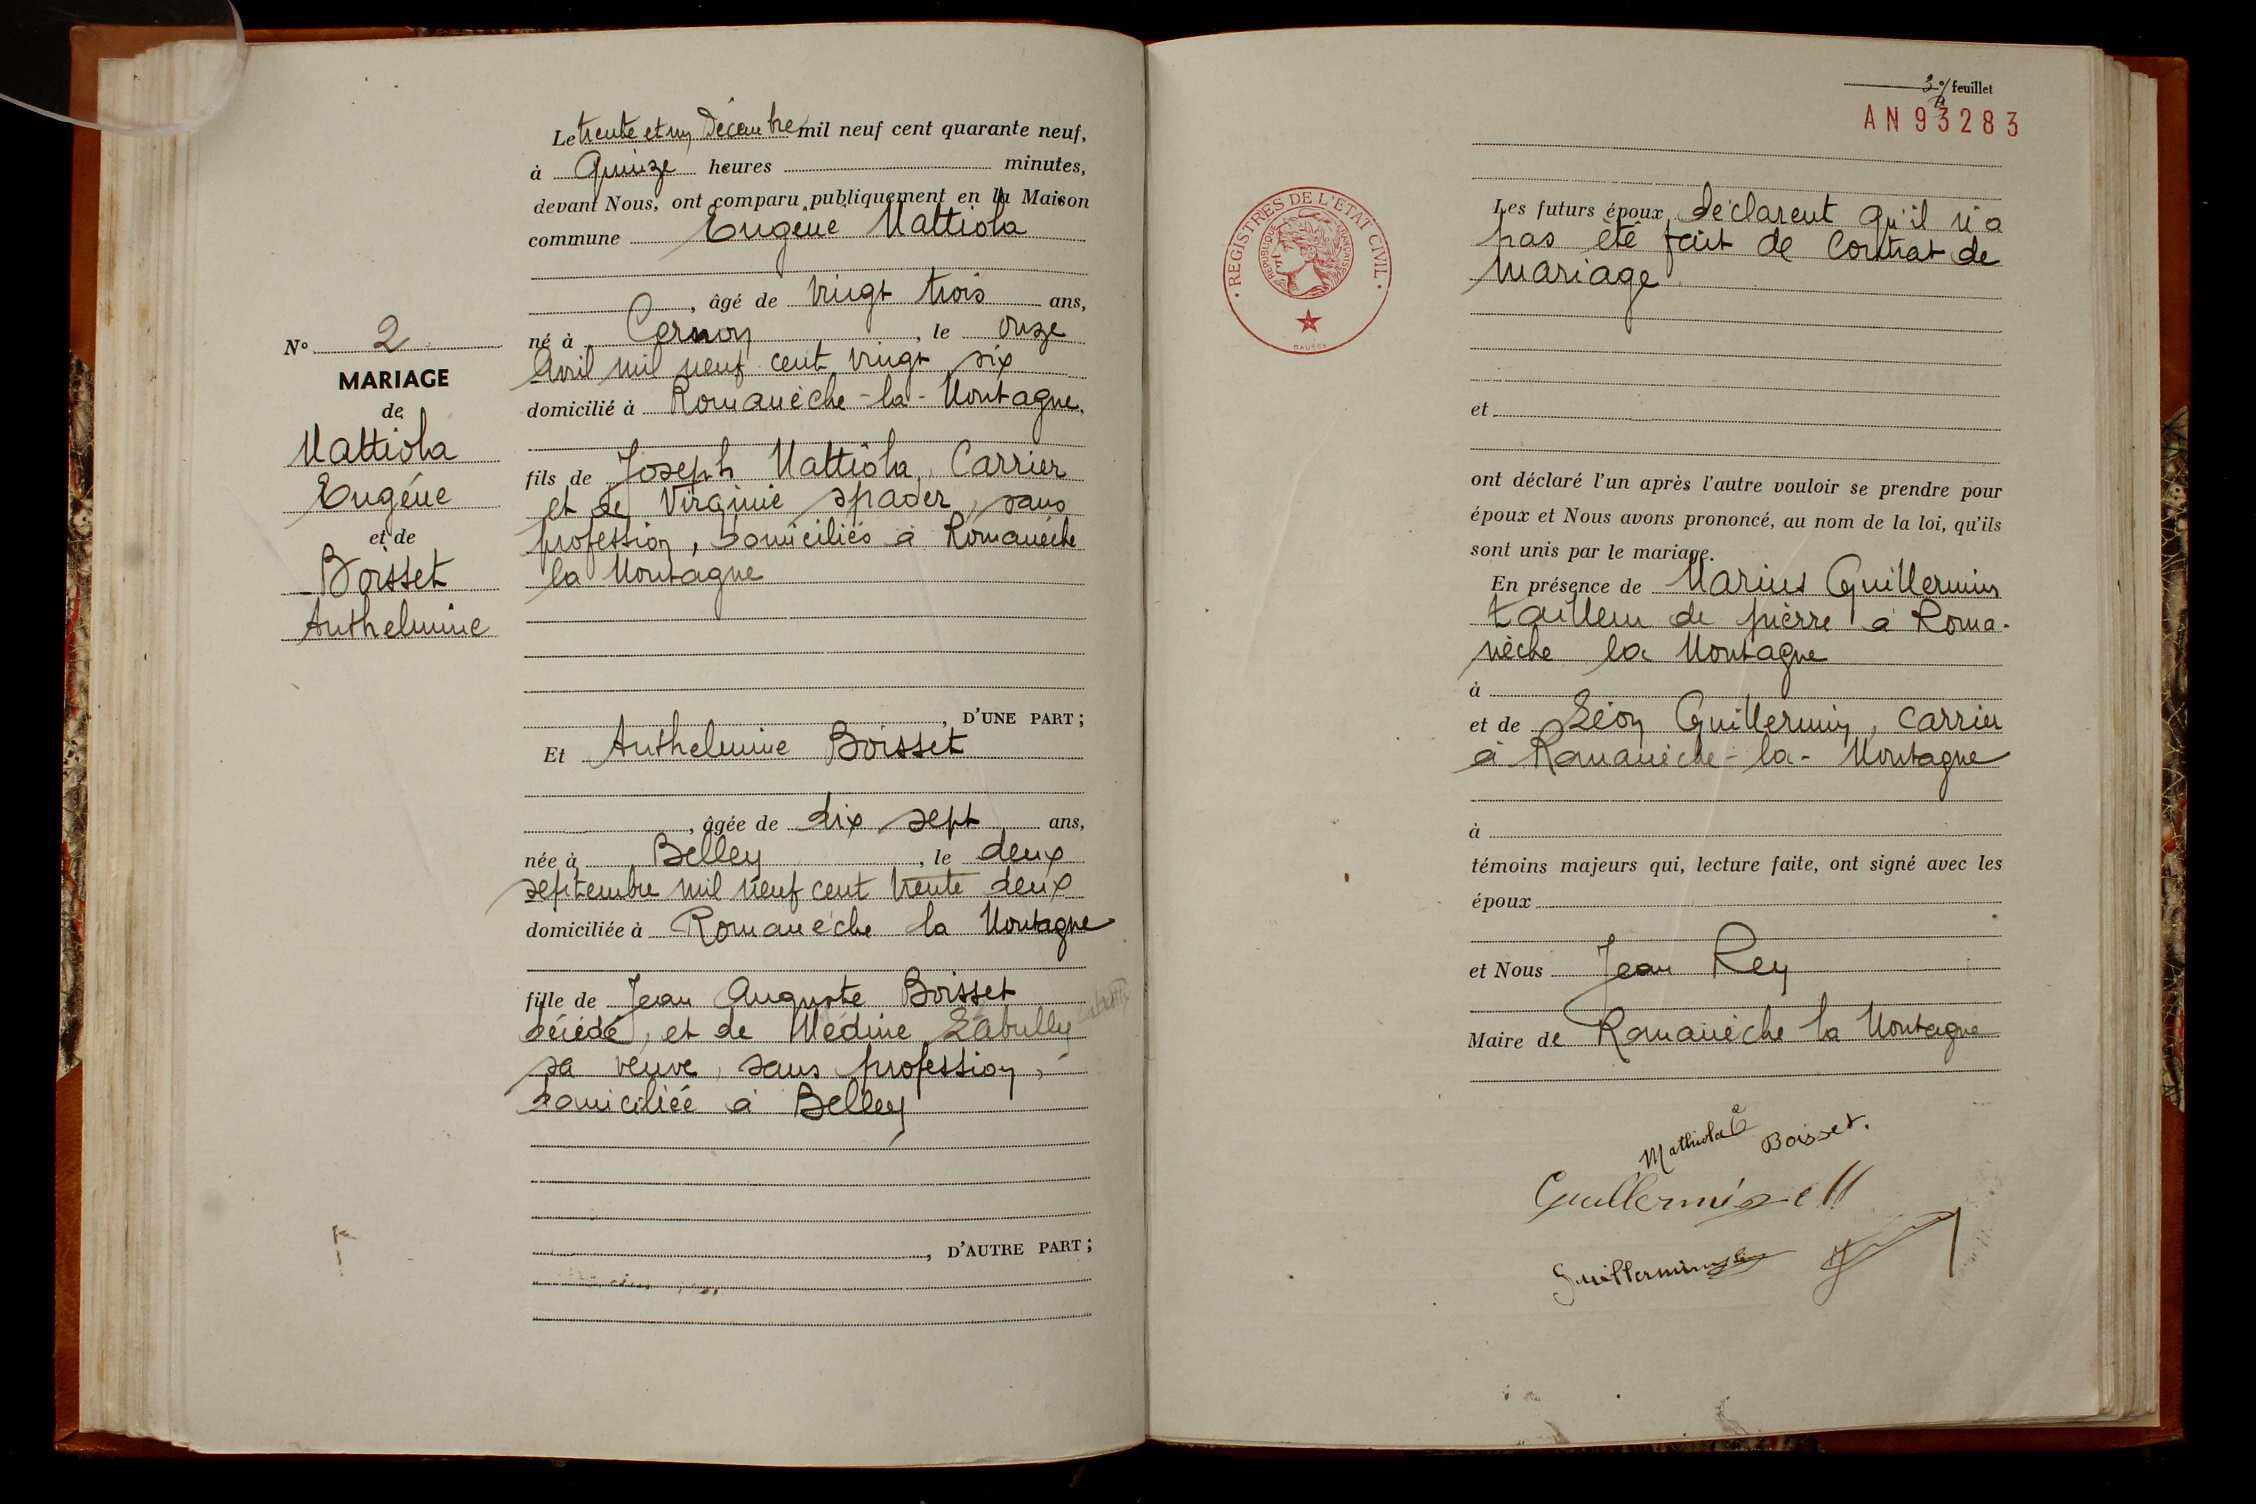 Le trente et un Décembre mil neuf cent quarante neuf,
à Quinze heures minutes,
devant Nous, ont comparu publiquement en la Maison
commune Eugène Mattiola
, âgé de vingt trois ans,
né à Cernon, le onze
Avril mil neuf cent vingt six
domicilié à Romanèche-la-Montagne.
fils de Joseph Mattiola, Carrier
et de Virginie Spader, sans
profession, domiciliés à Romanèche
la Montagne
, D'UNE PART ;
Et Anthelmine Boisset
, âgée de dix sept ans,
née à Belley, le deux
septembre mil neuf cent trente deux
domiciliée à Romanèche la Montagne
fille de Jean Auguste Boisset
décédé, et de Médine Labully
sa veuve, sans profession,
domiciliée à Belley
, D'AUTRE PART ;
N° 2
MARIAGE
de
Mattiola
Eugène
et de
Boisset
Anthelmine
feuillet
AN 93283
REGISTRES DE L'ETAT CIVIL
REPUBLIQUE FRANÇAISE
Les futurs époux déclarent qu'il n'a
pas été fait de Contrat de
mariage
et
ont déclaré l'un après l'autre vouloir se prendre pour
époux et Nous avons prononcé, au nom de la loi, qu'ils
sont unis par le mariage.
En présence de Marius Guillermin
tailleur de pierre à Roma-
nèche la Montagne
à
et de Léon Guillermin, carrier
à Romanèche-la-Montagne
à
témoins majeurs qui, lecture faite, ont signé avec les
époux
et Nous Jean Rey
Maire de Romanèche la Montagne
Mathiola E
Boisset.
Guillermin
Guillermin